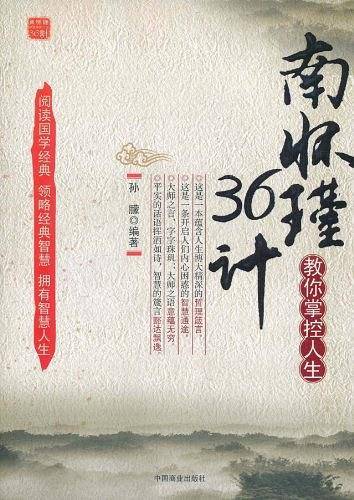 南怀瑾
36计
教你掌控人生
这是一本蕴含人生博大精深的哲理箴言，
这是一条开启人们内心困惑的智慧通途。
大师之言，字字珠玑；大师之语意蕴无穷。
平实的话语挥洒如诗，智慧的箴言豁达飘逸。
孙朦◎编著
阅读国学经典 领略经典智慧 拥有智慧人生
中国商业出版社